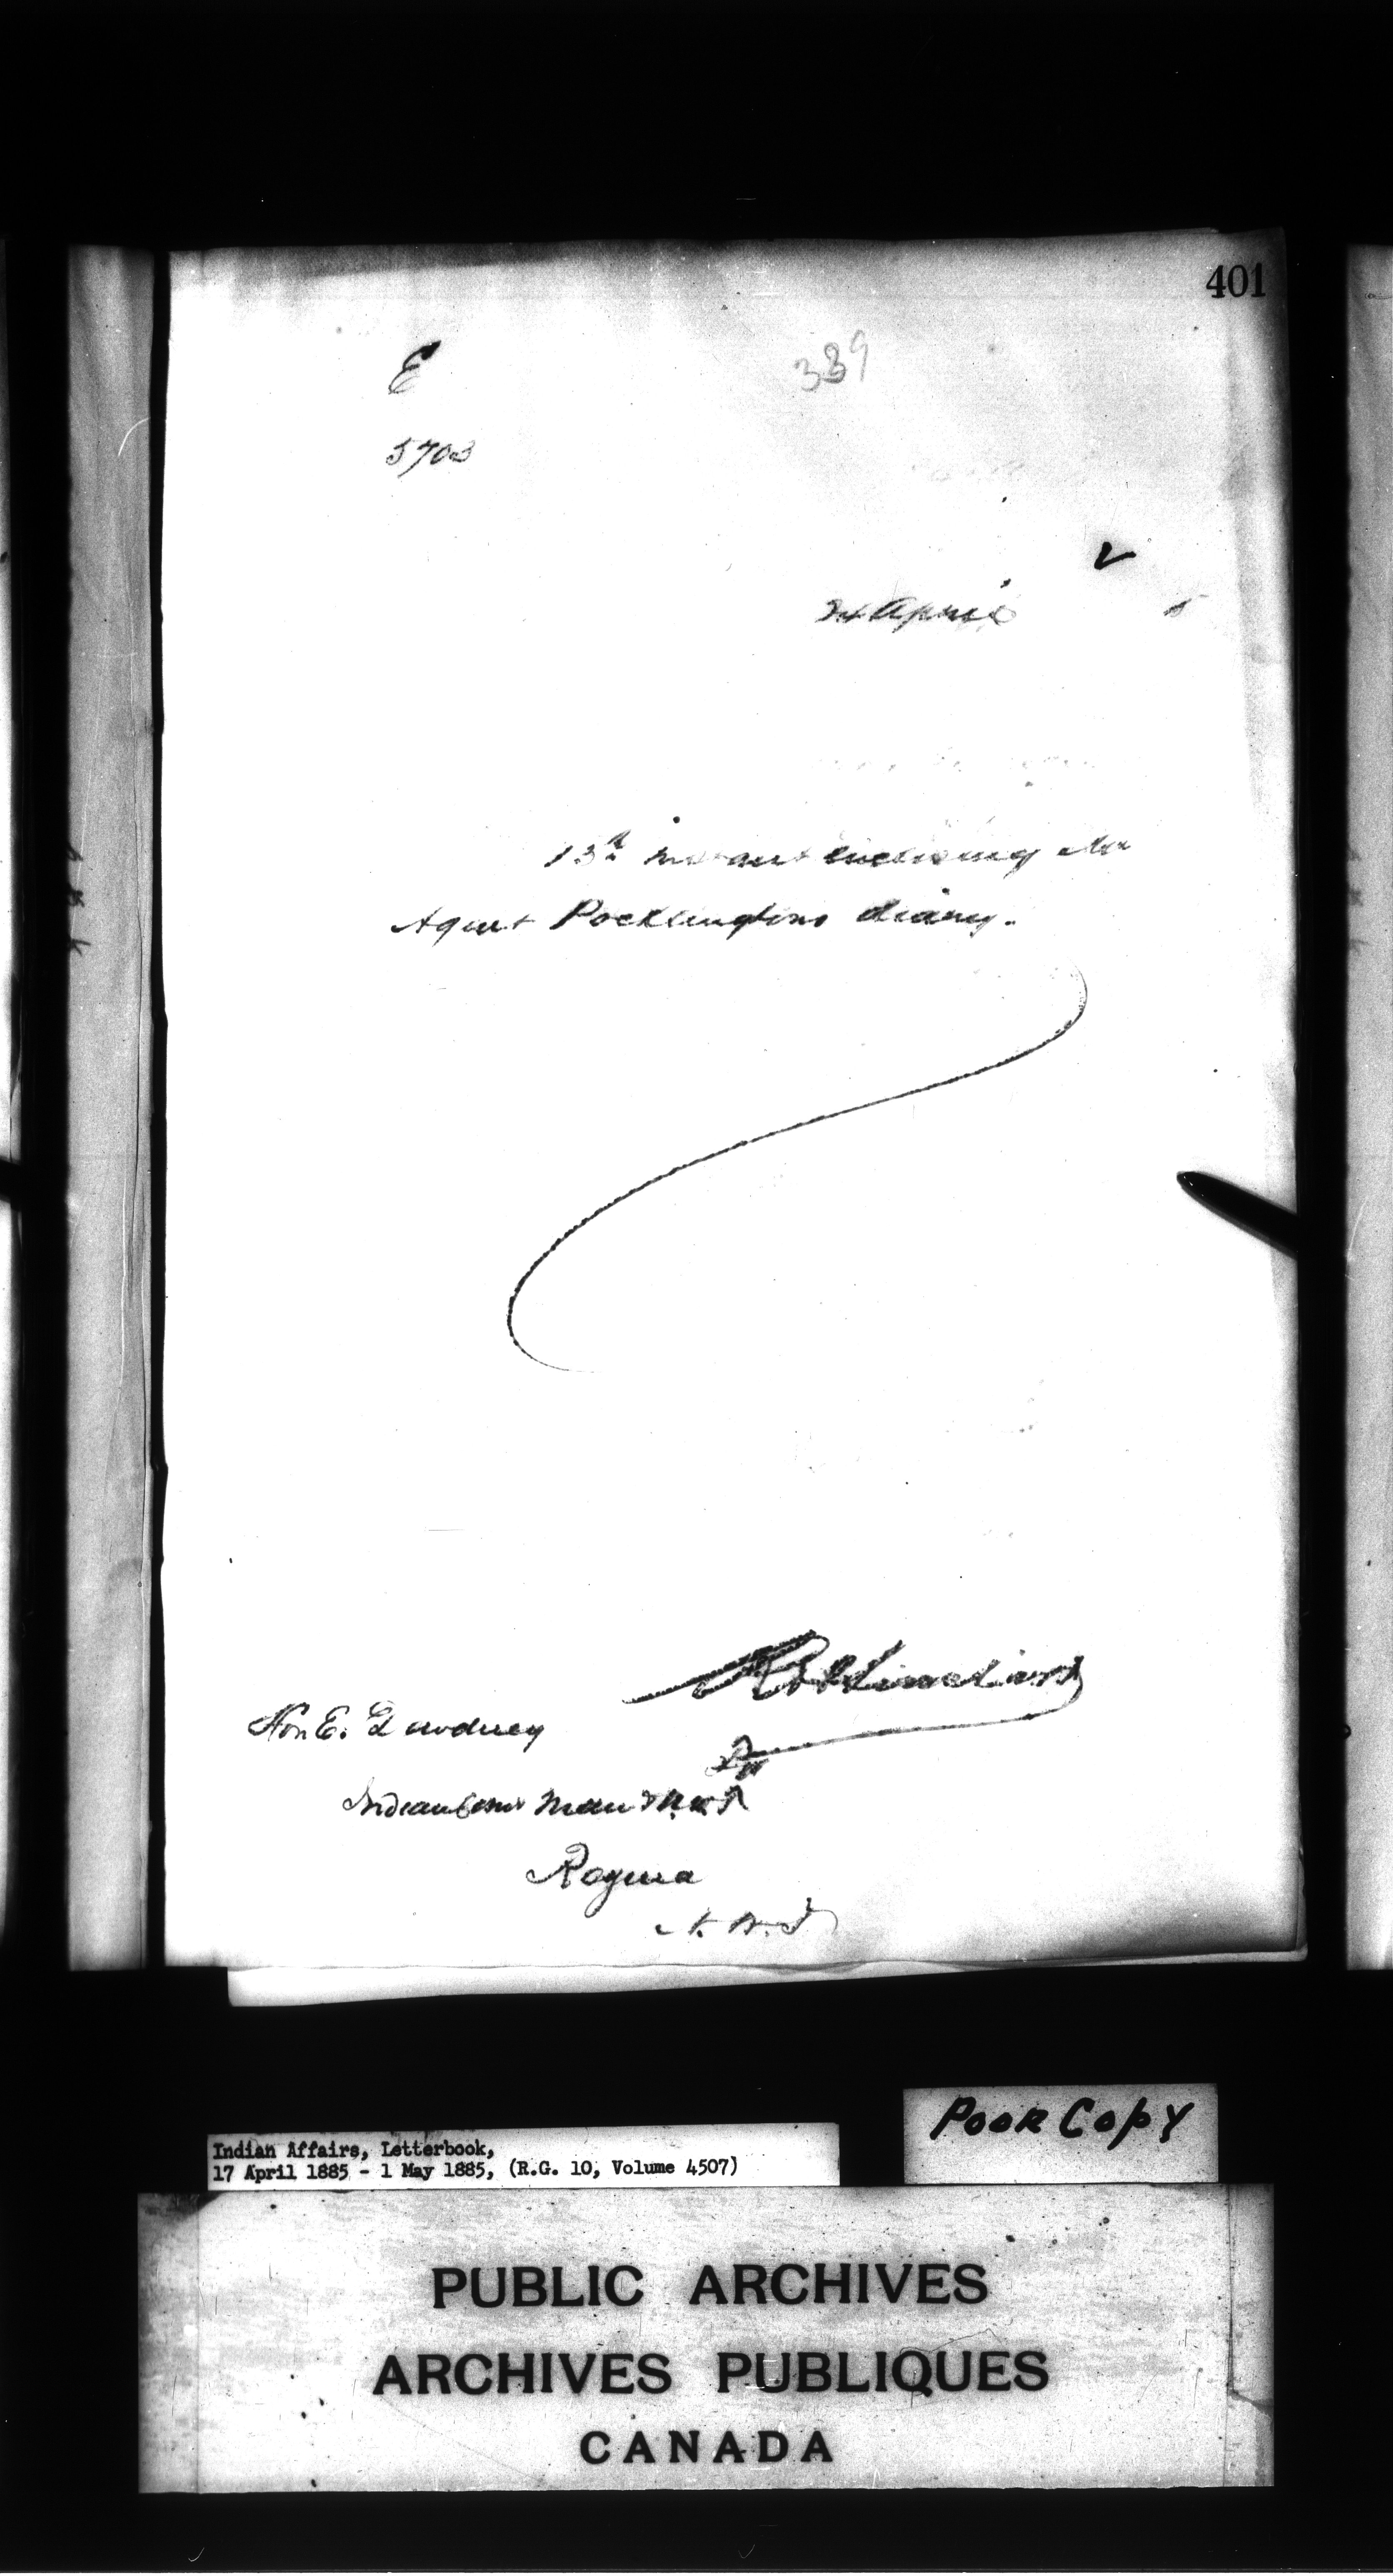 401
E
339
5703
24 April 5
13th instant enclosing Mr
Agent Pocklingtons diary.
Hon E. Dewdney
Indian Comr Man & N.W.T
Regina
N.W.T
Poor Copy
Indian Affairs, Letterbook,
17 April 1885 - 1 May 1885, (R.G. 10, Volume 4507)
PUBLIC ARCHIVES
ARCHIVES PUBLIQUES
CANADA